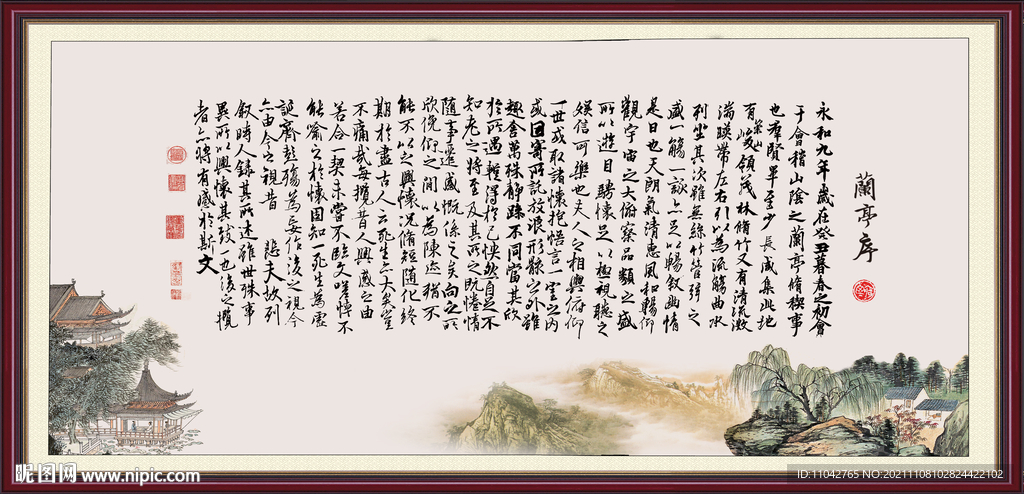 蘭亭序
永和九年歲在癸丑暮春之初會
于會稽山陰之蘭亭脩稧事
也羣賢畢至少長咸集此地
有崇山峻領茂林脩竹又有清流激
湍暎帶左右引以為流觴曲水
列坐其次雖無絲竹管弦之
盛一觴一詠亦足以暢敘幽情
是日也天朗氣清惠風和暢仰
觀宇宙之大俯察品類之盛
所以遊目騁懷足以極視聽之
娛信可樂也夫人之相與俯仰
一世或取諸懷抱悟言一室之內
或因寄所託放浪形骸之外雖
趣舍萬殊靜躁不同當其欣
於所遇暫得於己快然自足不
知老之將至及其所之既惓情
隨事遷感慨係之矣向之所
欣俛仰之間以為陳迹猶不
能不以之興懷況脩短隨化終
期於盡古人云死生亦大矣豈
不痛哉每攬昔人興感之由
若合一契未嘗不臨文嗟悼不
能喻之於懷固知一死生為虛
誕齊彭殤為妄作後之視今
亦由今之視昔 悲夫故列
敘時人錄其所述雖世殊事
異所以興懷其致一也後之攬
者亦將有感於斯文
昵图网 www.nipic.com
ID:11042765 NO:20211108102824422102